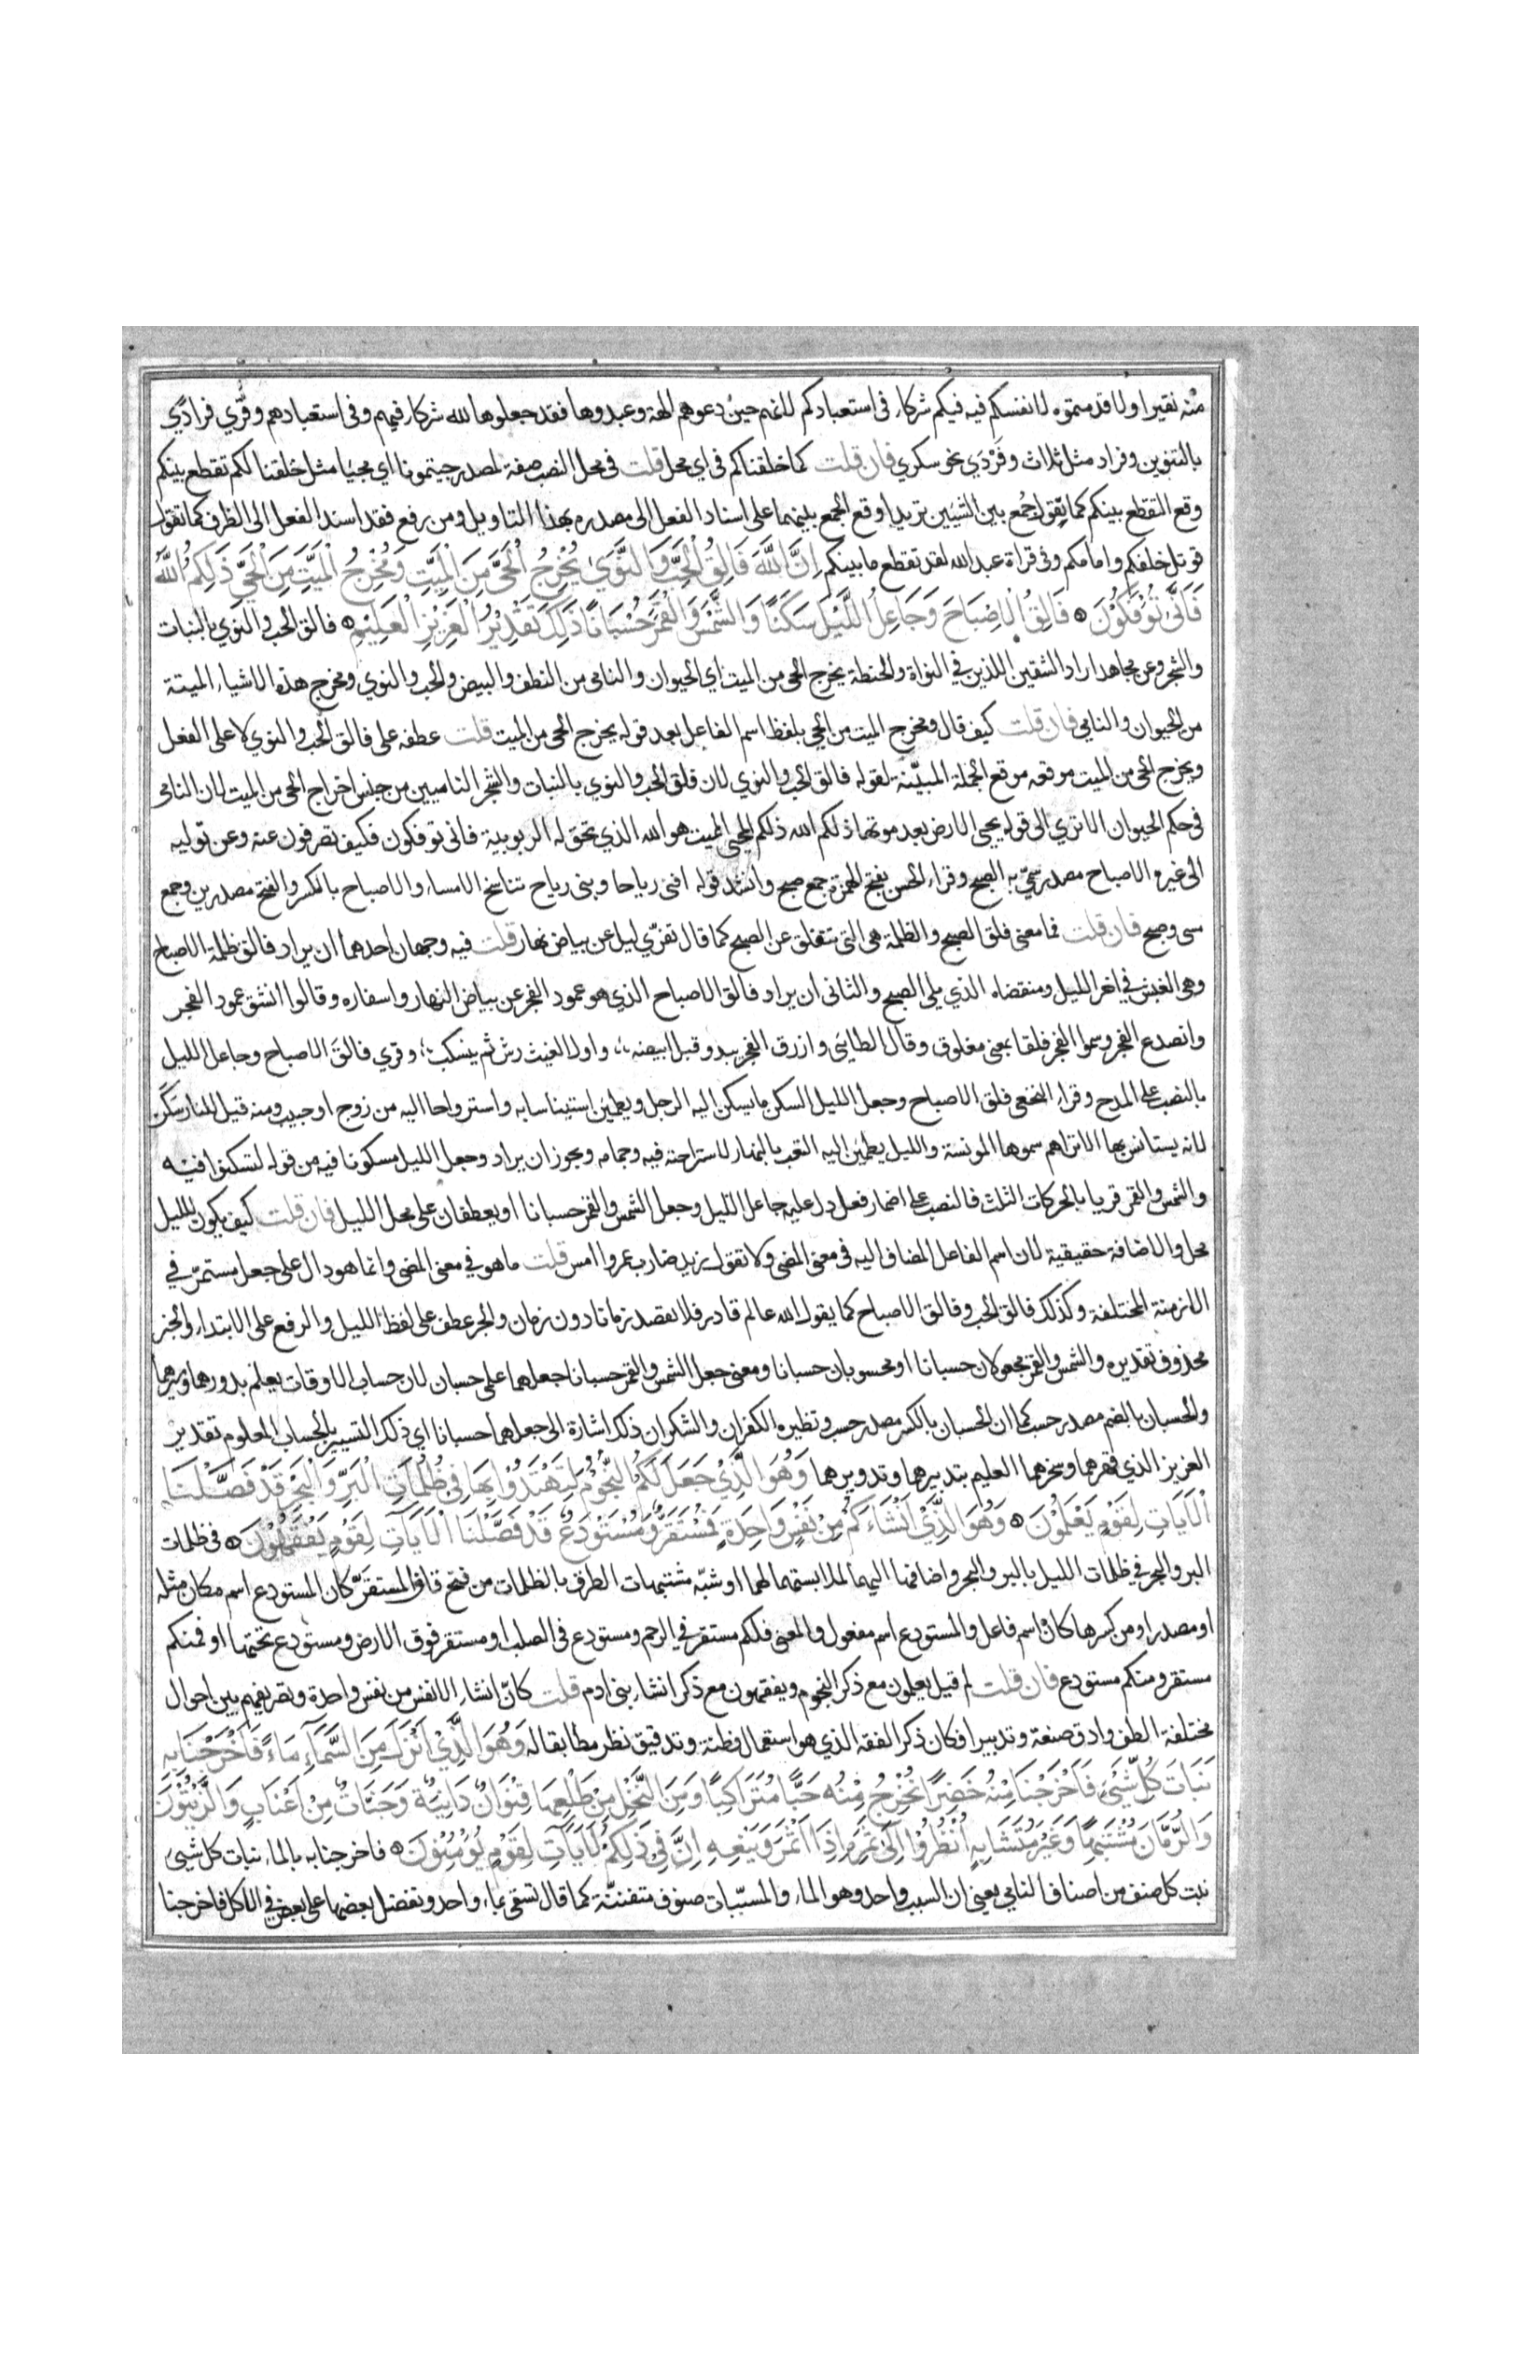 منه نقيرا ولا قدمتموه لانفسكم فيه فيكم شركاء في استعبادكم لانهم حين دعوهم الهة وعبدوها فقد جعلوها لله شركاء فيهم وفي استعبادهم وقُرِي فرادًي
بالتنوين وفراد مثل ثلاث وفَرْدَي نحو سكري فان قلت كما خلقناكم في اي محل قلت في محل النصب صفة لمصدر جيتمونا اي مجيًا مثل خلقنا لكم تقطع بينكم
وقع التقطع بينكم كما تقول جُمع بين الشيئين تريد اوقع الجمع بينهما على اسناد الفعل الى مصدره بهذا التاويل ومن رفع فقد اسند الفعل الى الظرف كما تقول
قوتل خلفكم وامامكم وفي قراة عبد الله لقد تقطع ما بينكم اِنَّ اللَّهَ فَالِقُ الْحَبِّ وَالنَّوَيٰ يُخْرِجُ الْحَيَّ مِنَ الْمَيِّتِ وَمُخْرِجُ الْمَيِّتِ مِنَ الْحَيِّ ذَلِكُمُ اللَّهُ
فَاَنَّى تُوْفَكُوْنَ ۝ فَالِقُ الْاِصْبَاحَ وَجَاعِلُ اللَّيْلَ سَكَنًا وَالشَّمْسَ وَالْقَمَرَ حُسْبَانًا ذَلِكَ تَقْدِيْرُ الْعَزِيْزِ الْعَلِيْمِ ۝ فالق الحب والنوي بالنبات
والشجر وعن مجاهد اراد الشقين اللذين في النواة والحنطة يخرج الحى من الميت اي الحيوان والنامى من النطف والبيض والحب والنوي ومخرج هذه الاشياء الميتة
من الحيوان والنامي فان قلت كيف قال ومخرج الميت من الحي بلفظ اسم الفاعل بعد قوله يخرج الحى من الميت قلت عطفه على فالق الحب والنوي لا على الفعل
ويخرج الحى من الميت موقعه موقع الجملة المبيّنة لقوله فالق الحب والنوي لان فلق الحب والنوي بالنبات والشجر الناميين من جنس اخراج الحى من الميت لان النامى
في حكم الحيوان الا تري الى قوله يحيى الارض بعد موتها ذلكم الله ذلكم المحيى المميت هو الله الذي تحق له الربوبية فانى توفكون فكيف تصرفون عنه وعن توليه
الى غيره الاصباح مصدر سمّي به الصبح وقراء الحسن بفتح الهمزة جمع صبح وانشد قوله افنى رياحا وبنى رياح تناسخ الامساء والاصباح بالكسر والفتح مصدرين وجمع
مسى وصبح فان قلت فما معنى فلق الصبح والظلمة هى التى تنفلق عن الصبح كما قال تفرّي ليل عن بياض نهار قلت فيه وجهان احدهما ان يراد فالق ظلمة الاصباح
وهي الغبش في اخر الليل ومنقضاه الذي يلى الصبح والثانى ان يراد فالق الاصباح الذي هو عمود الفجر عن بياض النهار واسفاره وقالوا انشق عمود الفجر
وانصدع الفجر وسموا الفجر فلقا بمعنى مفلوق وقال الطائى وازرق الفجر يبدو قبل ابيضه واول الغيث رش ثم ينسكب وقري فالقَ الاصباح وجاعل الليل
بالنصب على المدح وقراء النخعى فلق الاصباح وجعل الليل السكن ما يسكن اليه الرجل ويطمئن استيناسا به واسترواحا اليه من زوج او حبيب ومنه قيل للنار سَكَن
لانه يستانس بها الا تراهم سموها المونسة والليل يطمئن اليه التعب بالنهار لاستراحته فيه وجمامه ويجوز ان يراد وجعل الليل مسكونا فيه من قوله لتسكنوا فيه
والشمس والقمر قريا بالحركات الثلث فالنصب على اضمار فعل دل عليه جاعل الليل وجعل الشمس والقمر حسبانا او يعطفان على محل الليل فان قلت كيف يكون لليل
محل والاضافة حقيقية لان اسم الفاعل المضاف اليه في معنى المضى ولا تقول زيد ضارب عمروا امس قلت ما هو في معنى المضى وانما هو دال على جعل مستمرّ في
الازمنة المختلفة وكذلك فالق الحب وفالق الاصباح كما يقول الله عالم قادر فلا تقصد زمانا دون زمان والجر عطف على لفظ الليل والرفع على الابتداء والخبر
محذوف تقديره والشمس والقمر مجعولان حسبانا او محسوبان حسبانا ومعنى جعل الشمس والقمر حسبانا جعلهما على حسبان لان حساب الاوقات يعلم بدورهما وسيرهما
والحسبان بالضم مصدر حسب كما ان الحسبان بالكسر مصدر حسب ونظيره الكفران والشكران ذلك اشارة الى جعلهما حسبانا اي ذلك التسيير بالحساب المعلوم تقدير
العزيز الذي قهرهما وسخرهما العليم بتدبيرهما وتدويرهما وَهُوَ الَّذِيْ جَعَلَ لَكُمُ النُّجُوْمَ لِتَهْتَدُوْا بِهَا فِي ظُلُمَاتِ الْبَرِّ وَالْبَحْرِ قَدْ فَصَّلْنَا
الْآيَاتِ لِقَوْمٍ يَعْلَمُوْنَ ۝ وَهُوَ الَّذِيْ اَنْشَاَءَكُمْ مِنْ نَفْسٍ وَاحِدَةٍ فَمُسْتَقَرٌّ وَمُسْتَوْدَعٌ قَدْ فَصَّلْنَا الْآيَاتِ لِقَوْمٍ يَفْقَهُوْنَ ۝ في ظلمات
البر والبحر في ظلمات الليل بالبر والبحر واضافها اليهما لملابستهما لهما او شبّه مشتبهات الطرق بالظلمات من فتح قاف المستقَرّ كان المستودع اسم مكان مثله
او مصدرا ومن كسرها كان اسم فاعل والمستودع اسم مفعول والمعنى فلكم مستقر في الرحم ومستودع في الصلب او مستقر فوق الارض ومستودع تحتها او فمنكم
مستقر ومنكم مستودع فان قلت لم قيل يعلمون مع ذكر النجوم ويفقهون مع ذكر انشاء بنى ادم قلت كانّ انشاء الانفس من نفس واحدة وتصريفهم بين احوال
مختلفة الطف وادق صنعة وتدبيرا فكان ذكر الفقه الذي هو استعمال فطنة وتدقيق نظر مطابقا له وَهُوَ الَّذِيْ اَنْزَلَ مِنَ السَّمَآءِ مَاءً فَاَخْرَجْنَا بِهِ
نَبَاتَ كُلِّ شَيْءٍ فَاَخْرَجْنَا مِنْهُ خَضِرًا نُخْرِجُ مِنْهُ حَبًّا مُتَرَاكِبًا وَمِنَ النَّخْلِ مِنْ طَلْعِهَا قِنْوَانٌ دَانِيَةٌ وَجَنَّاتٌ مِنْ اَعْنَابٍ وَالزَّيْتُوْنَ
وَالرُّمَّانَ مُشْتَبِهًا وَغَيْرَ مُتَشَابِهٍ اُنْظُرُوْا اِلَى ثَمَرِهِ اِذَا اَثْمَرَ وَيَنْعِهِ اِنَّ فِيْ ذَلِكُمْ لَآيَاتٍ لِقَوْمٍ يُؤْمِنُوْنَ ۝ فاخرجنا به بالماء نبات كل شيء
نبت كل صنف من اصناف النامي يعني ان السبب واحد وهو الماء والمسبّبات صنوف متفننّة كما قال تسقى بماء واحد ونفضل بعضها على بعض في الاكل فاخرجنا